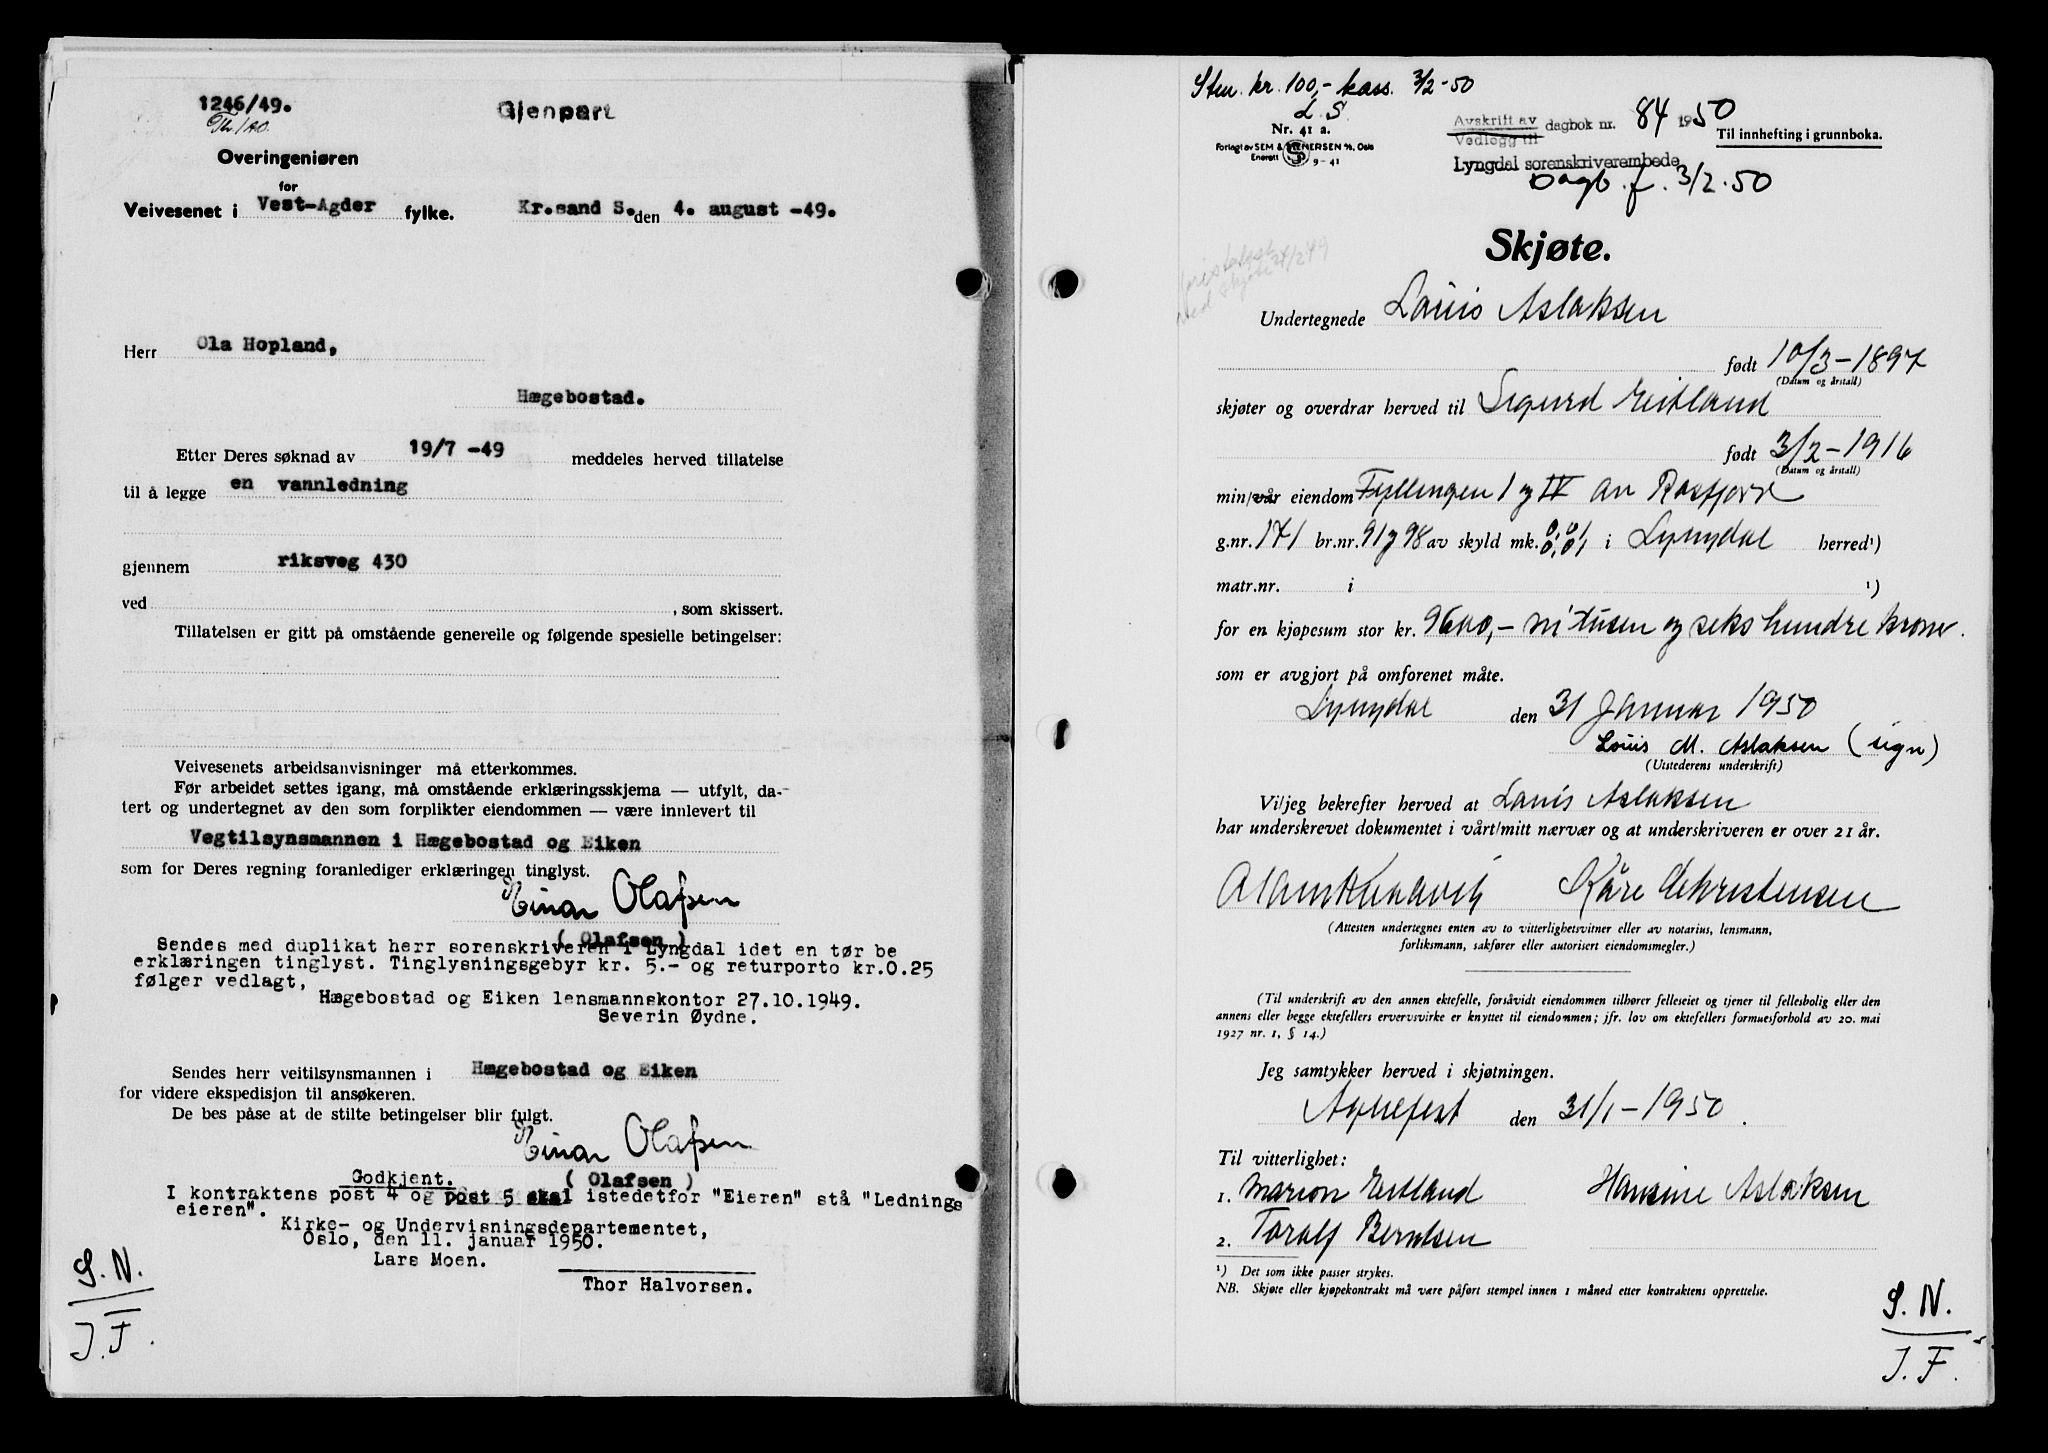 1246/49.
Gjenpart
Overingeniøren
for
Veivesenet i Vest-Agder fylke. Kr.sand S. den 4. august -49.
Herr Ola Hopland,
Hægebostad.
Etter Deres søknad av 19/7 -49 meddeles herved tillatelse
til å legge en vannledning
gjennem riksveg 430
ved , som skissert.
Tillatelsen er gitt på omstående generelle og følgende spesielle betingelser:
Veivesenets arbeidsanvisninger må etterkommes.
Før arbeidet settes igang, må omstående erklæringsskjema — utfylt, da-
tert og undertegnet av den som forplikter eiendommen — være innlevert til
Vegtilsynsmannen i Hægebostad og Eiken
som for Deres regning foranlediger erklæringen tinglyst.
Einar Olafsen
( Olafsen )
Sendes med duplikat herr sorenskriveren i Lyngdal idet en tør be
erklæringen tinglyst. Tinglysningsgebyr kr. 5.- og returporto kr.0.25
følger vedlagt,
Hægebostad og Eiken lensmannskontor 27.10.1949.
Severin Øydne.
Sendes herr veitilsynsmannen i Hægebostad og Eiken
for videre ekspedisjon til ansøkeren.
De bes påse at de stilte betingelser blir fulgt.
Einar Olafsen
( Olafsen )
Godkjent.
I kontraktens post 4 og post 5 skal istedetfor "Eieren" stå "Lednings
eieren".
Kirke- og Undervisningsdepartementet,
Oslo, den 11. januar 1950.
Lars Moen.
Thor Halvorsen.
S. N.
J. F.
Stem. kr. 100,- kass. 3/2-50
L. S.
Nr. 41 a.
Forlagt av SEM & STENERSEN A/S, Oslo
Enerett S 9-41
Avskrift av
Vedlegg til dagbok nr. 84 1950
Til innhefting i grunnboka.
Lyngdal sorenskriverembede
Dagb. f. 3/2.50
Skjøte.
Undertegnede Louis Aslaksen
født 10/3-1897
(Datum og årstall)
skjøter og overdrar herved til Sigurd Eritland
født 3/2-1916
(Datum og årstall)
min/vår eiendom Fyllingen I og IV av Rosfjord
g.nr. 171 br.nr. 91 og 98 av skyld mk. 0,01 0,01 i Lyngdal herred¹)
matr.nr. i ¹)
for en kjøpesum stor kr. 9600,- nitusen og sekshundre kroner.
som er avgjort på omforenet måte.
Lyngdal den 31 Januar 1950
Louis M. Aslaksen (sign)
(Utstederens underskrift)
Vi/jeg bekrefter herved at Louis Aslaksen
har underskrevet dokumentet i vårt/mitt nærvær og at underskriveren er over 21 år.
Kåre Christensen
(Attesten undertegnes enten av to vitterlighetsvitner eller av notarius, lensmann,
forliksmann, sakfører eller autorisert eiendomsmegler.)
(Til underskrift av den annen ektefelle, forsåvidt eiendommen tilhører felleseiet og tjener til fellesbolig eller den
annens eller begge ektefellers ervervsvirke er knyttet til eiendommen; jfr. lov om ektefellers formuesforhold av 20. mai
1927 nr. 1, § 14.)
Jeg samtykker herved i skjøtningen.
Agnefest den 31/1-1950.
Til vitterlighet:
1. Marion Eritland Hansine Aslaksen
2. Toralf Berntsen
¹) Det som ikke passer strykes.
NB. Skjøte eller kjøpekontrakt må være påført stempel innen 1 måned etter kontraktens opprettelse.
S. N.
J. F.